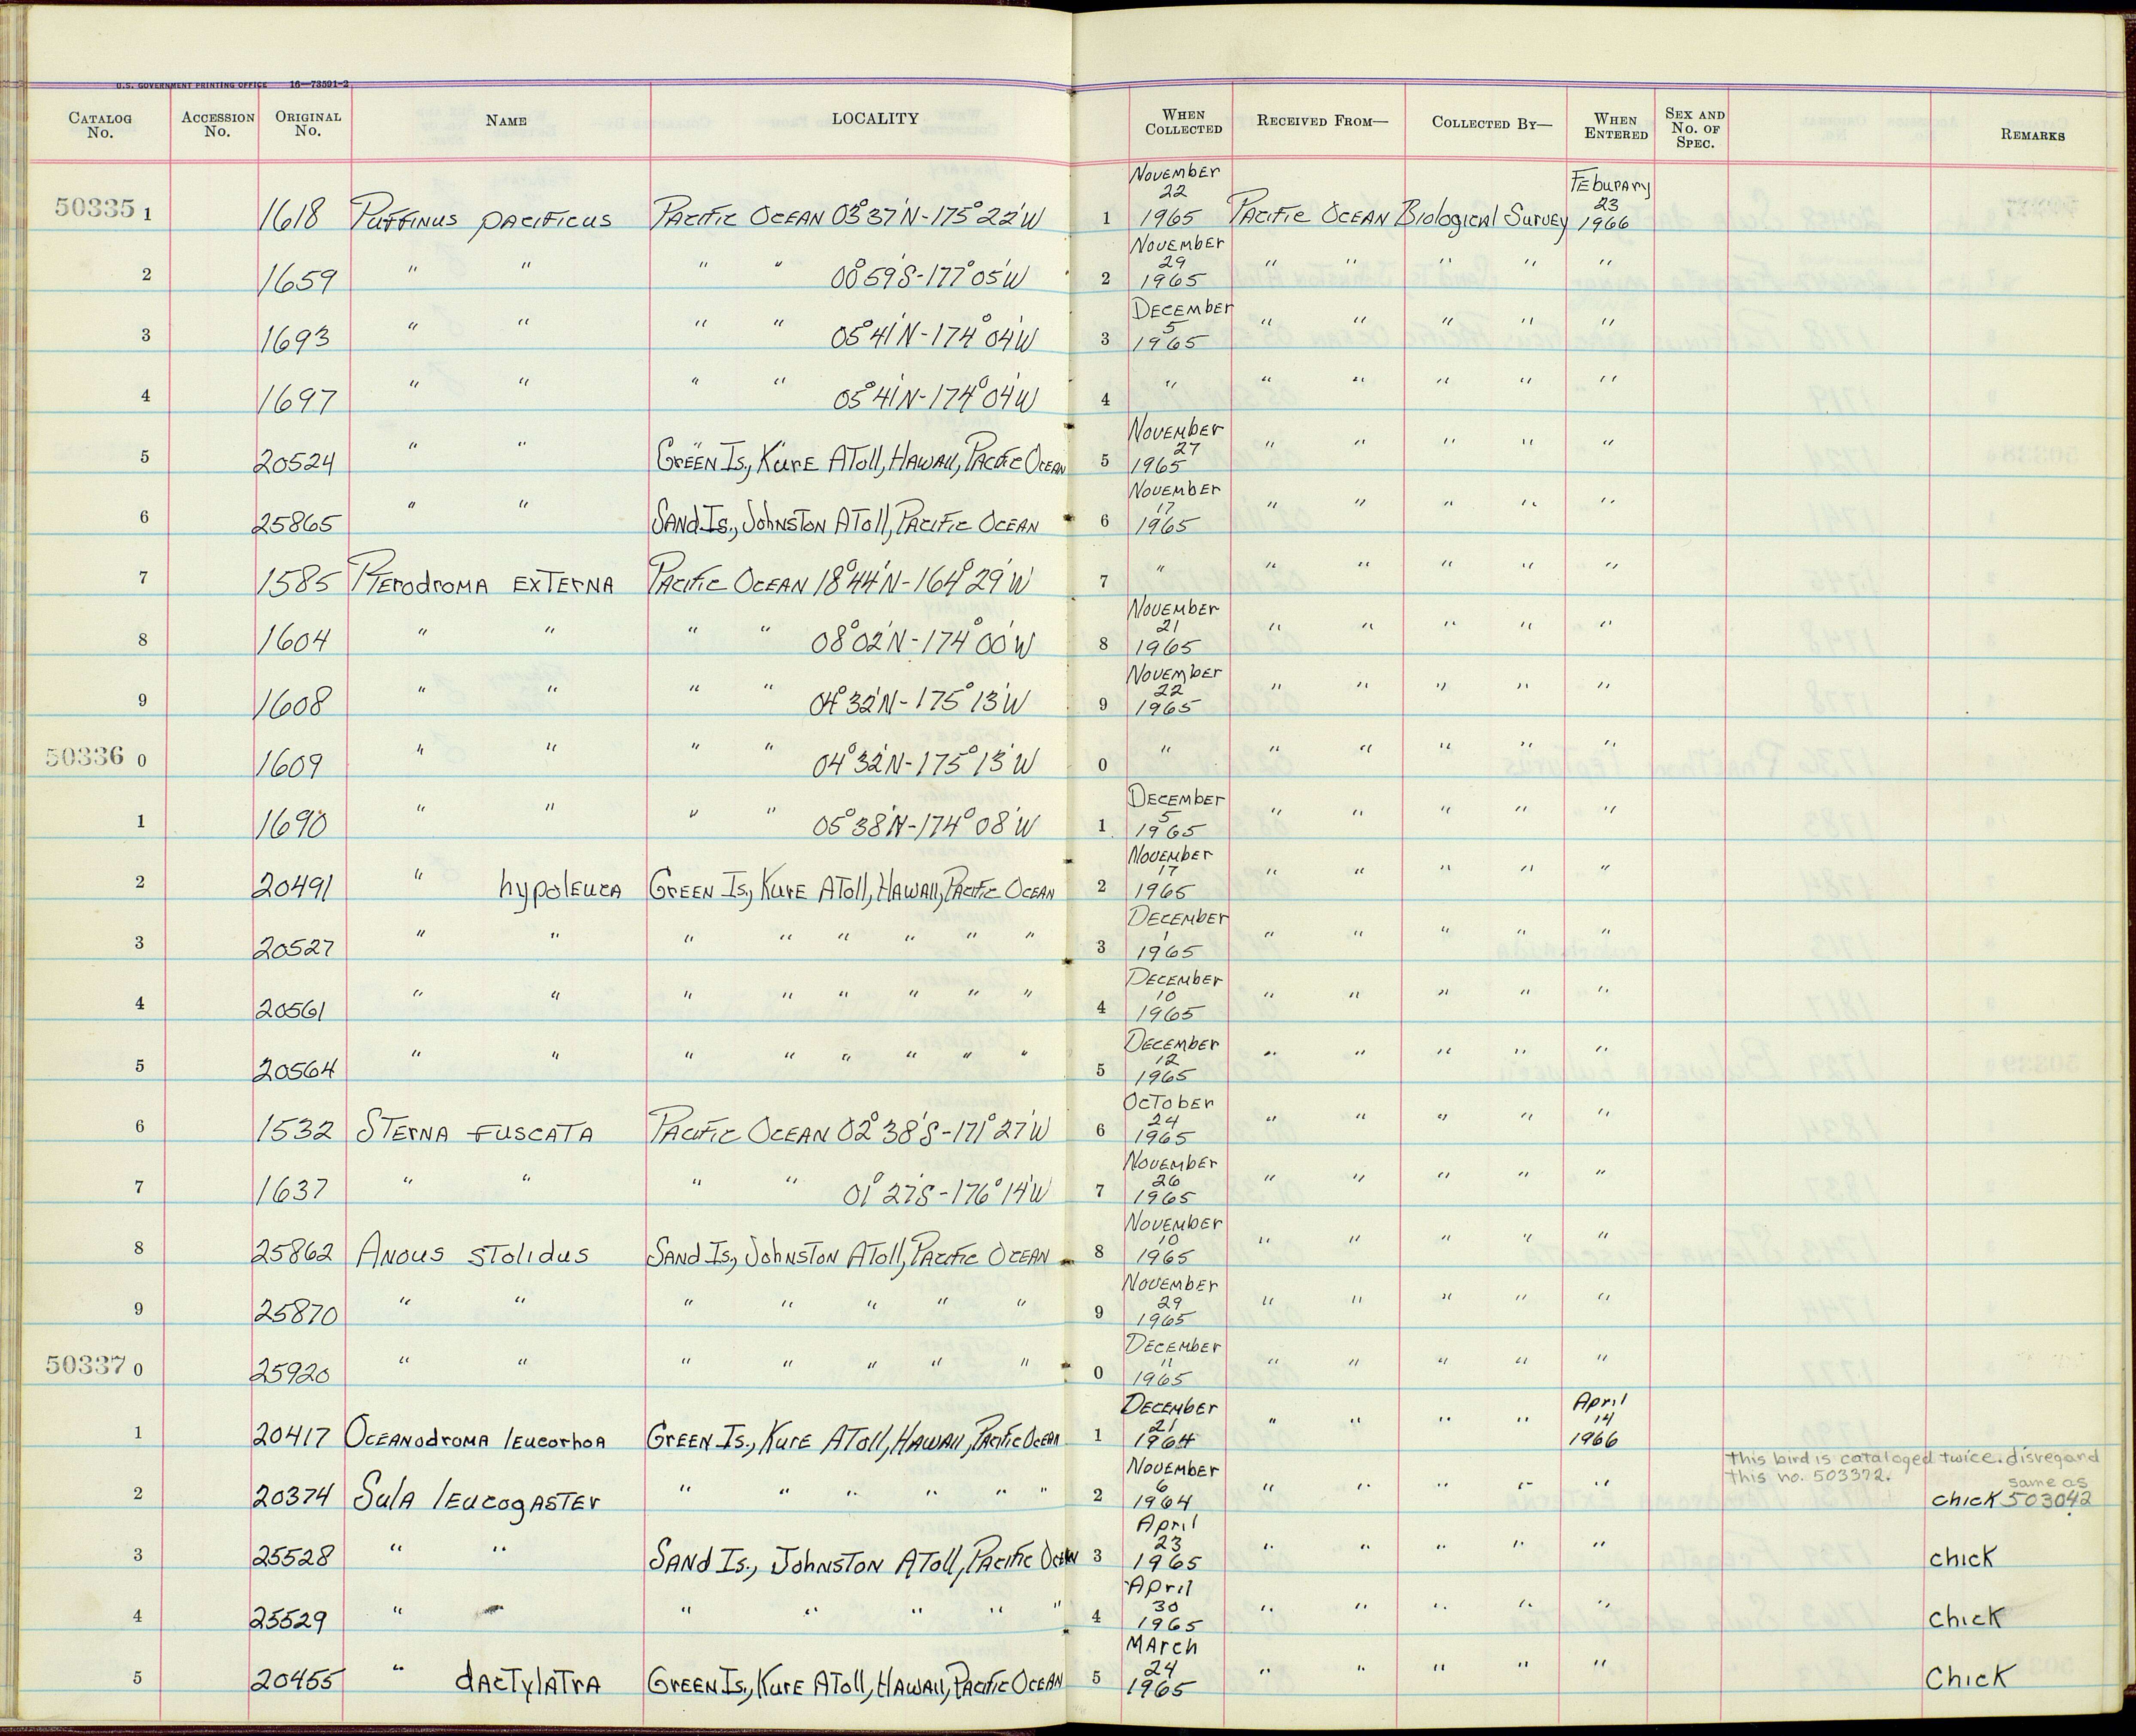 U.S. GOVERNMENT PRINTING OFFICE 16—73591-2
CATALOG No. ACCESSION No. ORIGINAL No. NAME LOCALITY WHEN COLLECTED RECEIVED FROM— COLLECTED BY— WHEN ENTERED SEX AND No. OF SPEC. REMARKS
50335 1 1618 Puffinus pacificus Pacific Ocean 03°37'N-175°22'W 1 November 22 1965 Pacific Ocean Biological Survey Feburary 23 1966
2 1659 " " " " 00°59'S-177°05'W 2 November 29 1965 " " " " "
3 1693 " " " " 05°41'N-174°04'W 3 December 5 1965 " " " " "
4 1697 " " " " 05°41'N-174°04'W 4 " " " " " "
5 20524 " " Green Is., Kure Atoll, Hawaii, Pacific Ocean 5 November 27 1965 " " " " "
6 25865 " " Sand Is., Johnston Atoll, Pacific Ocean 6 November 17 1965 " " " " "
7 1585 Pterodroma externa Pacific Ocean 18°44'N-164°29'W 7 " " " " " "
8 1604 " " " " 08°02'N-174°00'W 8 November 21 1965 " " " " "
9 1608 " " " " 04°32'N-175°13'W 9 November 22 1965 " " " " "
50336 0 1609 " " " " 04°32'N-175°13'W 0 " " " " " "
1 1690 " " " " 05°38'N-174°08'W 1 December 5 1965 " " " " "
2 20491 " hypoleuca Green Is., Kure Atoll, Hawaii, Pacific Ocean 2 November 17 1965 " " " " "
3 20527 " " " " " " " " 3 December 1 1965 " " " " "
4 20561 " " " " " " " " 4 December 10 1965 " " " " "
5 20564 " " " " " " " " 5 December 12 1965 " " " " "
6 1532 Sterna fuscata Pacific Ocean 02°38'S-171°27'W 6 October 24 1965 " " " " "
7 1637 " " " " 01°27'S-176°14'W 7 November 26 1965 " " " " "
8 25862 Anous stolidus Sand Is., Johnston Atoll, Pacific Ocean 8 November 10 1965 " " " " "
9 25870 " " " " " " " 9 November 29 1965 " " " " "
50337 0 25920 " " " " " " " 0 December 11 1965 " " " " "
1 20417 Oceanodroma leucorhoa Green Is., Kure Atoll, Hawaii, Pacific Ocean 1 December 21 1964 " " " " April 14 1966
This bird is cataloged twice. disregard
this no. 503372. same as
2 20374 Sula leucogaster " " " " " " 2 November 6 1964 " " " " " chick 503042
3 25528 " " Sand Is., Johnston Atoll, Pacific Ocean 3 April 23 1965 " " " " " chick
4 25529 " " " " " " " 4 April 30 1965 " " " " " chick
5 20455 " dactylatra Green Is., Kure Atoll, Hawaii, Pacific Ocean 5 March 24 1965 " " " " " Chick